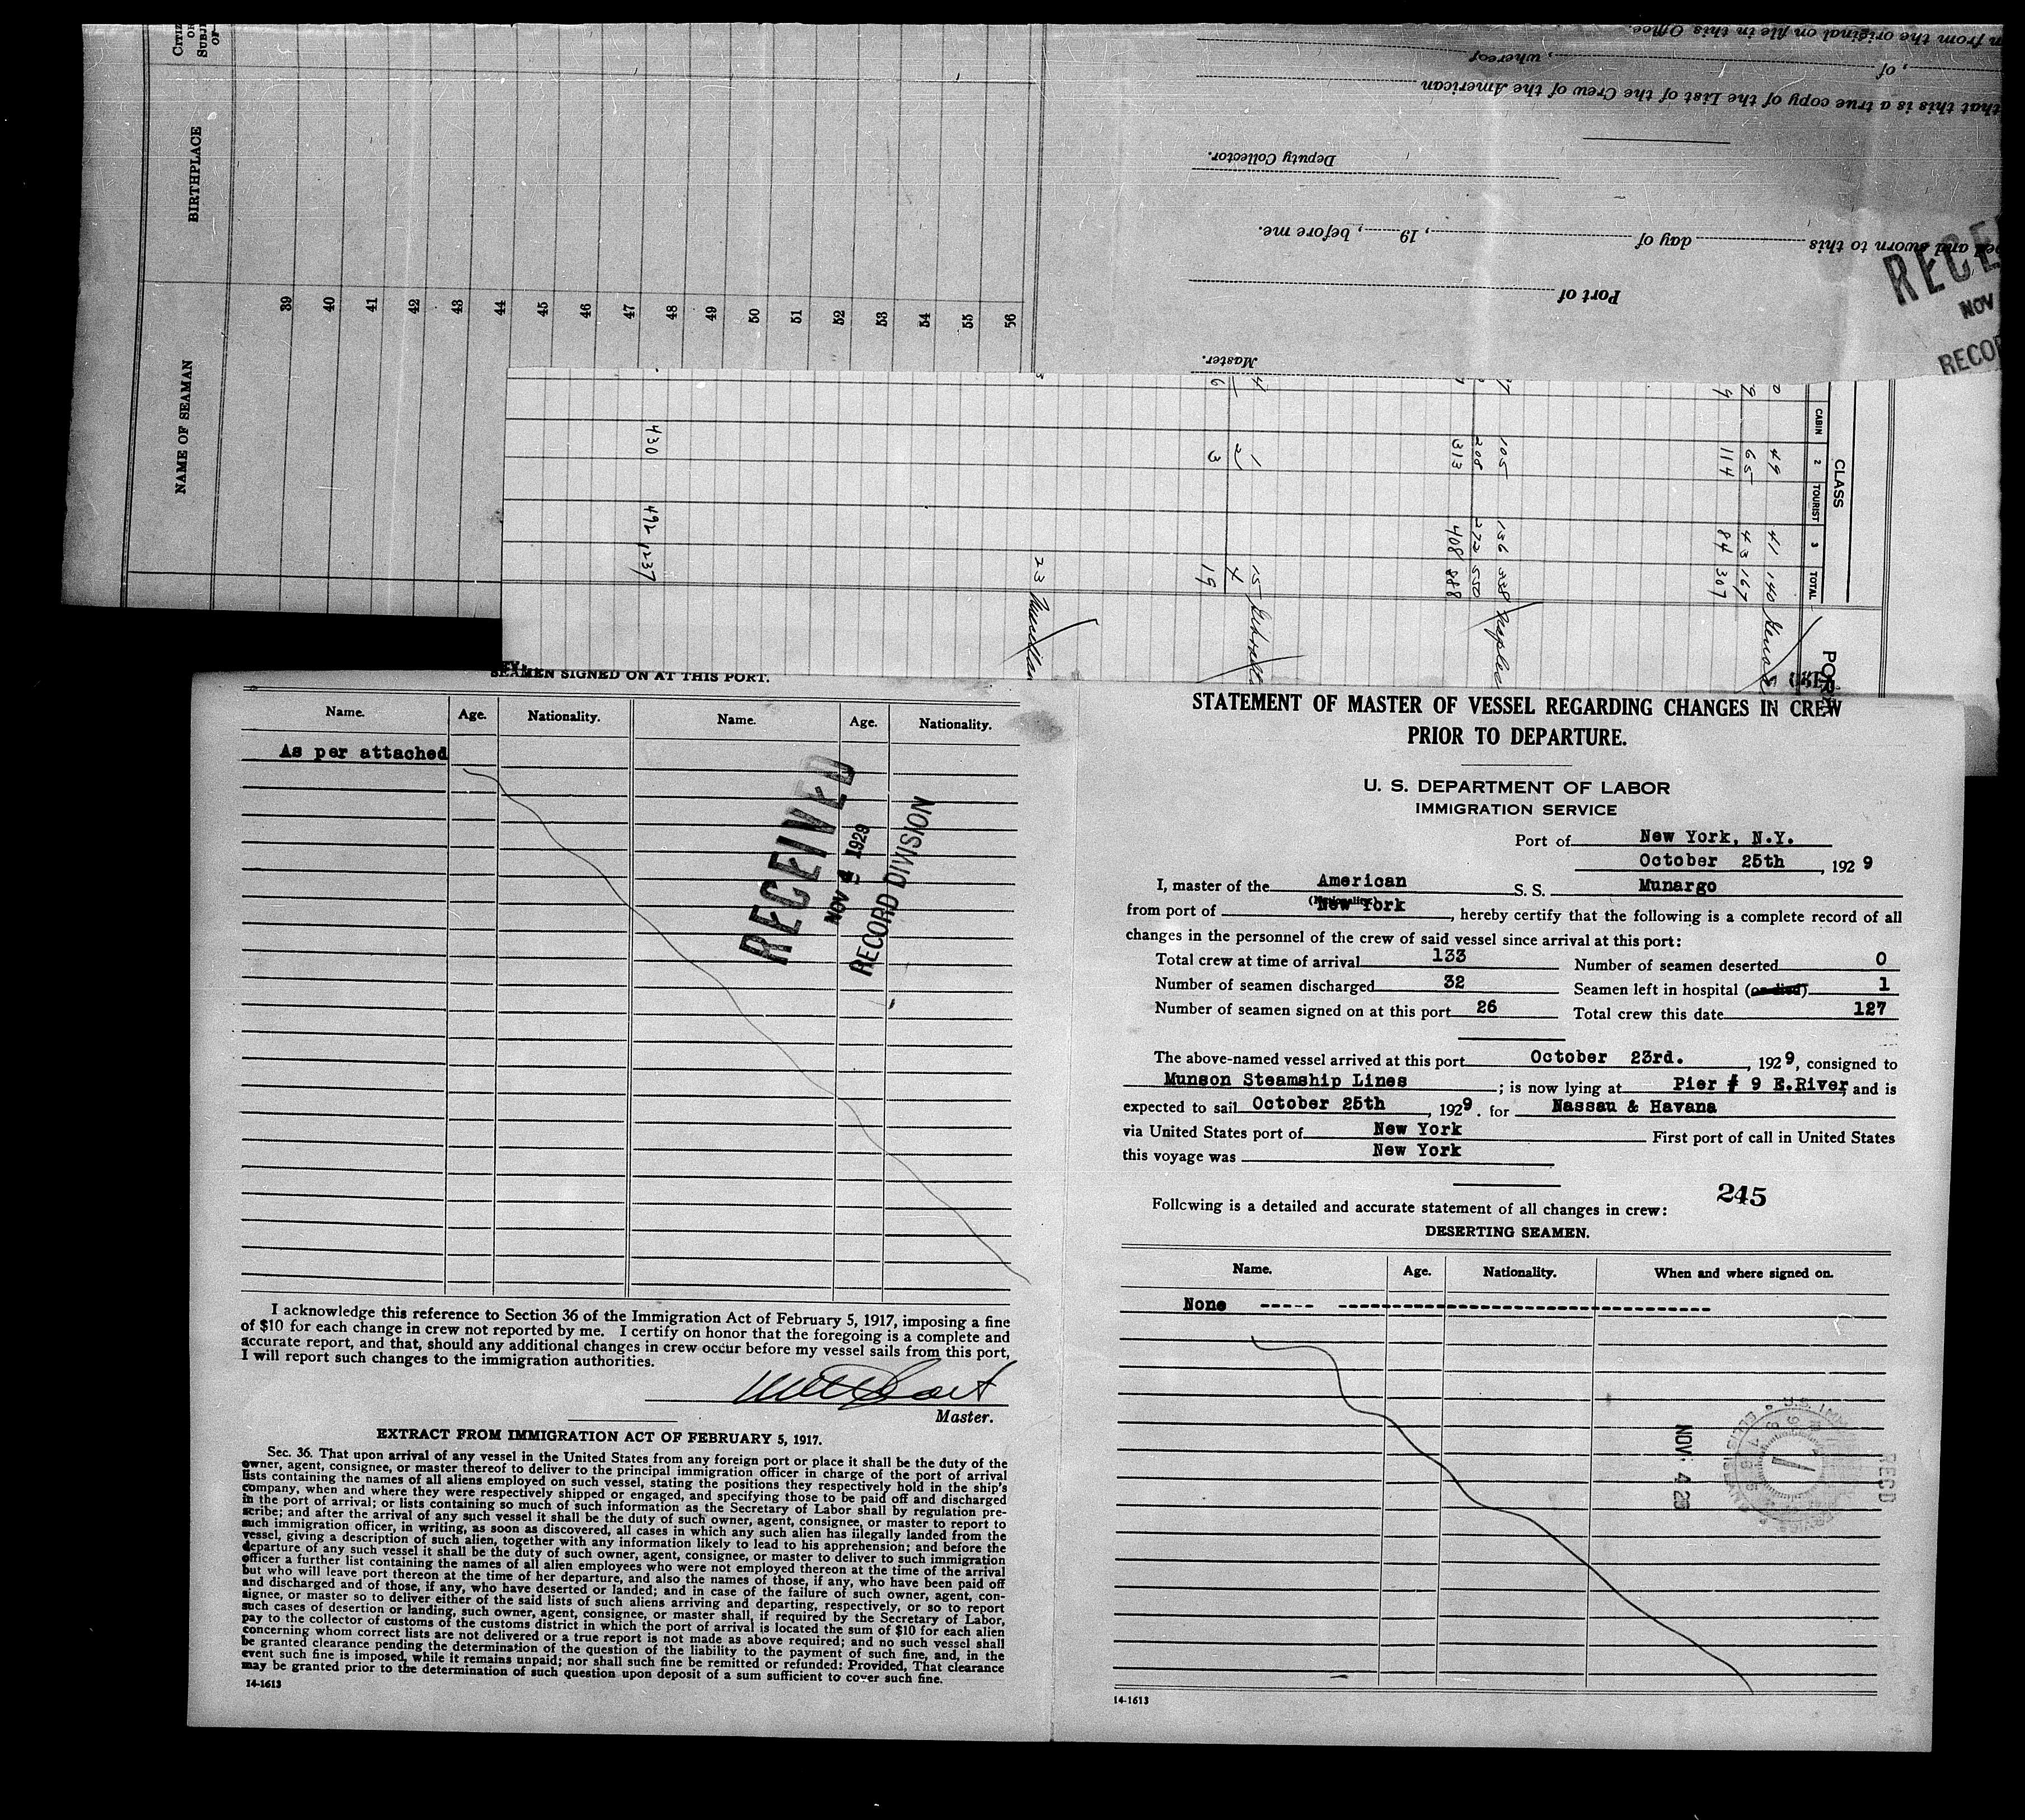 CITIZ
OR
SUBJ
OF
BIRTHPLACE
NAME OF SEAMAN
39
40
41
42
43
44
45
46
47
48
49
50
51
52
53
54
55
56
from the original on file in this Office.
, of , whereof
that this is a true copy of the List of the Crew of the American
Deputy Collector.
and sworn to this day of , 19 , before me.
Port of
Master.
RECE
NOV
RECOR
CLASS
CABIN
2
TOURIST
3
TOTAL
PORT
49 41 140
65 43 167
114 84 307
105 156 338 Naples
208 272 550
313 408 888
1 15
2 4
3 19
23
430 492 1237
SEAMEN SIGNED ON AT THIS PORT.
Name. Age. Nationality. Name. Age. Nationality.
As per attached
RECEIVED
NOV 4 1929
RECORD DIVISION
I acknowledge this reference to Section 36 of the Immigration Act of February 5, 1917, imposing a fine
of $10 for each change in crew not reported by me. I certify on honor that the foregoing is a complete and
accurate report, and that, should any additional changes in crew occur before my vessel sails from this port,
I will report such changes to the immigration authorities.
Master.
EXTRACT FROM IMMIGRATION ACT OF FEBRUARY 5, 1917.
Sec. 36. That upon arrival of any vessel in the United States from any foreign port or place it shall be the duty of the
owner, agent, consignee, or master thereof to deliver to the principal immigration officer in charge of the port of arrival
lists containing the names of all aliens employed on such vessel, stating the positions they respectively hold in the ship's
company, when and where they were respectively shipped or engaged, and specifying those to be paid off and discharged
in the port of arrival; or lists containing so much of such information as the Secretary of Labor shall by regulation pre-
scribe; and after the arrival of any such vessel it shall be the duty of such owner, agent, consignee, or master to report to
such immigration officer, in writing, as soon as discovered, all cases in which any such alien has illegally landed from the
vessel, giving a description of such alien, together with any information likely to lead to his apprehension; and before the
departure of any such vessel it shall be the duty of such owner, agent, consignee, or master to deliver to such immigration
officer a further list containing the names of all alien employees who were not employed thereon at the time of the arrival
but who will leave port thereon at the time of her departure, and also the names of those, if any, who have been paid off
and discharged and of those, if any, who have deserted or landed; and in case of the failure of such owner, agent, con-
signee, or master so to deliver either of the said lists of such aliens arriving and departing, respectively, or so to report
such cases of desertion or landing, such owner, agent, consignee, or master shall, if required by the Secretary of Labor,
pay to the collector of customs of the customs district in which the port of arrival is located the sum of $10 for each alien
concerning whom correct lists are not delivered or a true report is not made as above required; and no such vessel shall
be granted clearance pending the determination of the question of the liability to the payment of such fine, and, in the
event such fine is imposed, while it remains unpaid; nor shall such fine be remitted or refunded: Provided, That clearance
may be granted prior to the determination of such question upon deposit of a sum sufficient to cover such fine.
14-1613
STATEMENT OF MASTER OF VESSEL REGARDING CHANGES IN CREW
PRIOR TO DEPARTURE.
U. S. DEPARTMENT OF LABOR
IMMIGRATION SERVICE
Port of New York, N.Y.
October 25th, 1929
I, master of the American S. S. Munargo
(Nationality)
from port of New York, hereby certify that the following is a complete record of all
changes in the personnel of the crew of said vessel since arrival at this port:
Total crew at time of arrival 133 Number of seamen deserted 0
Number of seamen discharged 32 Seamen left in hospital (or died) 1
Number of seamen signed on at this port 26 Total crew this date 127
The above-named vessel arrived at this port October 23rd., 1929, consigned to
Munson Steamship Lines; is now lying at Pier # 9 E.River, and is
expected to sail October 25th, 1929. for Nassau & Havana
via United States port of New York First port of call in United States
this voyage was New York
245
Following is a detailed and accurate statement of all changes in crew:
DESERTING SEAMEN.
Name. Age. Nationality. When and where signed on.
None
NOV. 4 29
RECD
14-1613